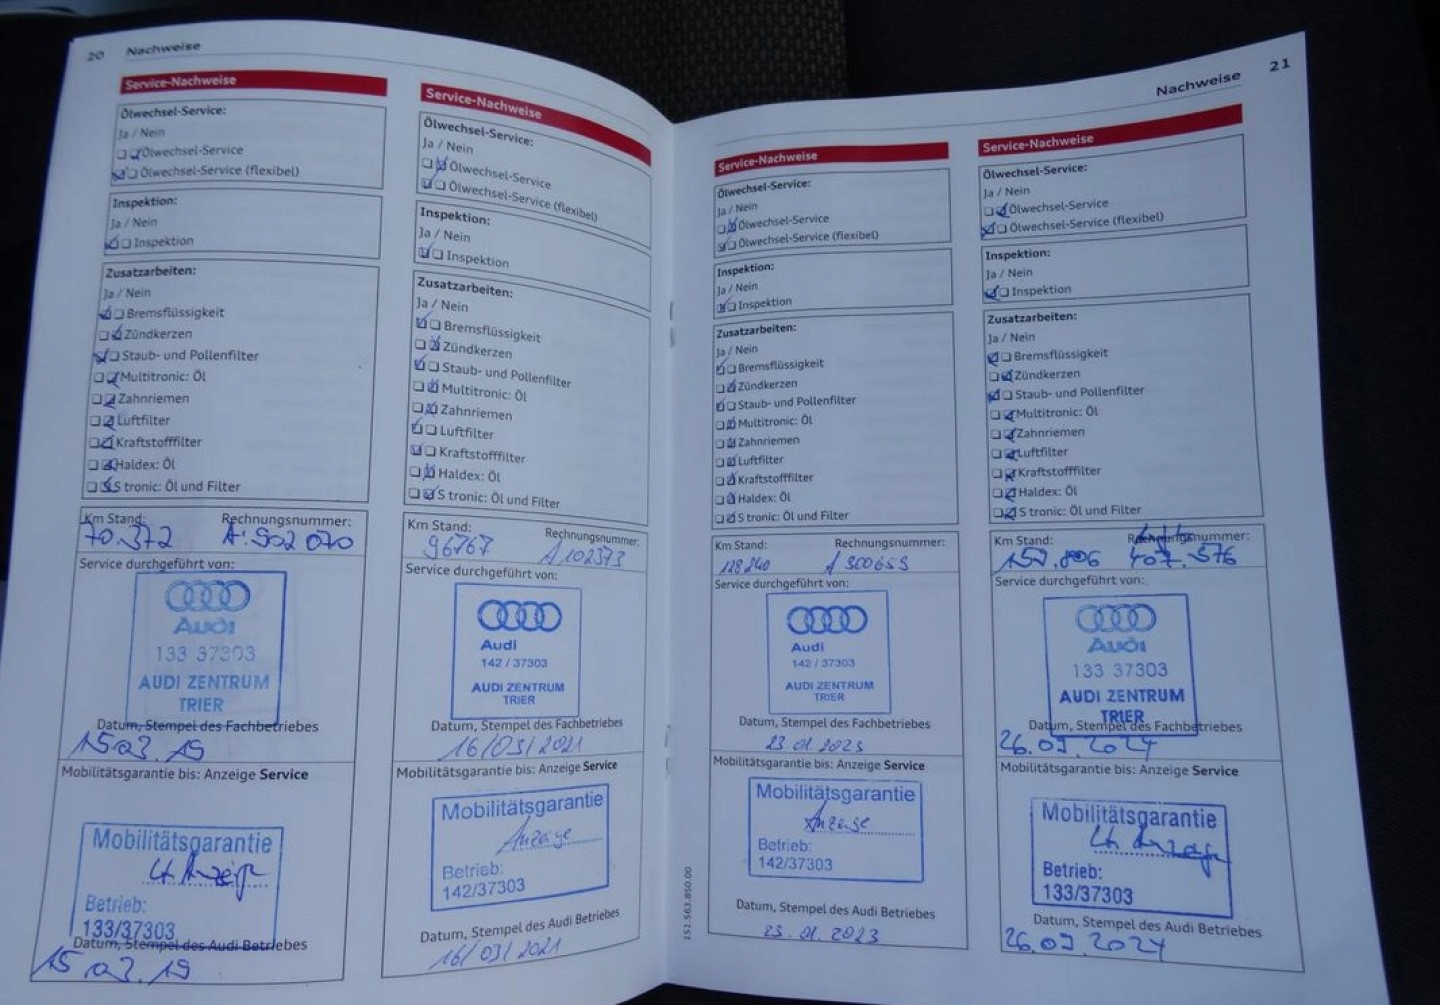 20 Nachweise
Service-Nachweise
Ölwechsel-Service:
Ja / Nein
Ölwechsel-Service
Ölwechsel-Service (flexibel)
Inspektion:
Ja / Nein
Inspektion
Zusatzarbeiten:
Ja / Nein
Bremsflüssigkeit
Zündkerzen
Staub- und Pollenfilter
Multitronic: Öl
Zahnriemen
Luftfilter
Kraftstofffilter
Haldex: Öl
S tronic: Öl und Filter
Km Stand: Rechnungsnummer:
70.372 A: 902 070
Service durchgeführt von:
Audi
133 37303
AUDI ZENTRUM
TRIER
Datum, Stempel des Fachbetriebes
15.03.19
Mobilitätsgarantie bis: Anzeige Service
Mobilitätsgarantie
Lt Anzeige
Betrieb:
133/37303
Datum, Stempel des Audi Betriebes
15.03.19
Service-Nachweise
Ölwechsel-Service:
Ja / Nein
Ölwechsel-Service
Ölwechsel-Service (flexibel)
Inspektion:
Ja / Nein
Inspektion
Zusatzarbeiten:
Ja / Nein
Bremsflüssigkeit
Zündkerzen
Staub- und Pollenfilter
Multitronic: Öl
Zahnriemen
Luftfilter
Kraftstofffilter
Haldex: Öl
S tronic: Öl und Filter
Km Stand: Rechnungsnummer:
96767 A 102373
Service durchgeführt von:
Audi
142 / 37303
AUDI ZENTRUM
TRIER
Datum, Stempel des Fachbetriebes
16/03/2021
Mobilitätsgarantie bis: Anzeige Service
Mobilitätsgarantie
Anzeige
Betrieb:
142/37303
Datum, Stempel des Audi Betriebes
16/03/2021
Nachweise 21
Service-Nachweise
Ölwechsel-Service:
Ja / Nein
Ölwechsel-Service
Ölwechsel-Service (flexibel)
Inspektion:
Ja / Nein
Inspektion
Zusatzarbeiten:
Ja / Nein
Bremsflüssigkeit
Zündkerzen
Staub- und Pollenfilter
Multitronic: Öl
Zahnriemen
Luftfilter
Kraftstofffilter
Haldex: Öl
S tronic: Öl und Filter
Km Stand: Rechnungsnummer:
128240 A 300653
Service durchgeführt von:
Audi
142 / 37303
AUDI ZENTRUM
TRIER
Datum, Stempel des Fachbetriebes
23.01.2023
Mobilitätsgarantie bis: Anzeige Service
Mobilitätsgarantie
Anzeige
Betrieb:
142/37303
Datum, Stempel des Audi Betriebes
23.01.2023
151.563.850.00
Service-Nachweise
Ölwechsel-Service:
Ja / Nein
Ölwechsel-Service
Ölwechsel-Service (flexibel)
Inspektion:
Ja / Nein
Inspektion
Zusatzarbeiten:
Ja / Nein
Bremsflüssigkeit
Zündkerzen
Staub- und Pollenfilter
Multitronic: Öl
Zahnriemen
Luftfilter
Kraftstofffilter
Haldex: Öl
S tronic: Öl und Filter
Km Stand: Rechnungsnummer:
407.576
Service durchgeführt von:
Audi
133 37303
AUDI ZENTRUM
TRIER
Datum, Stempel des Fachbetriebes
26.09.2024
Mobilitätsgarantie bis: Anzeige Service
Mobilitätsgarantie
Lt Anzeige
Betrieb:
133/37303
Datum, Stempel des Audi Betriebes
26.09.2024